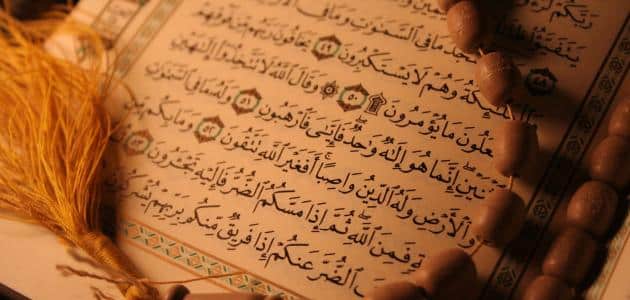 رَبَّكُمْ
يَتَفَيَّؤُا ٤٨
يَسْجُدُ مَا فِي السَّمَٰوَٰتِ وَمَا فِي
الْمَلَٰٓئِكَةُ وَهُمْ لَا يَسْتَكْبِرُونَ ٤٩ يَخَافُونَ رَبَّهُم مِّن فَوْقِهِمْ
يَفْعَلُونَ مَا يُؤْمَرُونَ ۩ ٥٠ ۞ وَقَالَ اللَّهُ لَا تَتَّخِذُوٓا إِلَٰهَيْنِ
إِنَّمَا هُوَ إِلَٰهٌ وَٰحِدٌ فَإِيَّٰيَ فَارْهَبُونِ ٥١ وَلَهُ مَا فِي السَّمَٰوَٰتِ
وَالْأَرْضِ وَلَهُ الدِّينُ وَاصِبًا أَفَغَيْرَ اللَّهِ تَتَّقُونَ ٥٢ وَمَا بِكُم مِّن
فَمِنَ اللَّهِ ثُمَّ إِذَا مَسَّكُمُ الضُّرُّ فَإِلَيْهِ تَجْـَٔرُونَ ٥٣
الضُّرَّ عَنكُمْ إِذَا فَرِيقٌ مِّنكُم بِرَبِّهِمْ يُشْرِكُونَ